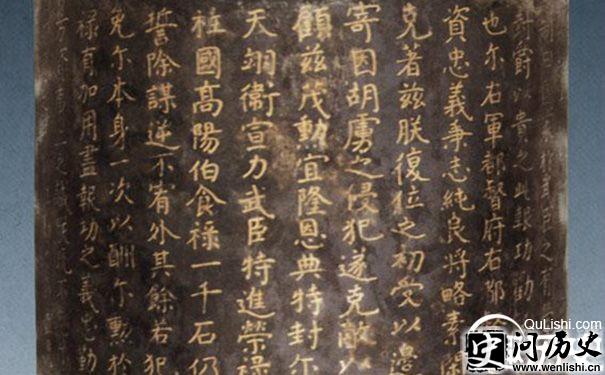 爵以貴之此報功勸
也尔右軍都督府右都
資忠義秉志純良將略素閑
克著兹朕復位之初受以邊
寄因胡虜之侵犯遂克敵以
顧兹茂勳宜隆恩典特封尔
天翊衛宣力武臣特進榮禄
柱國高陽伯食禄一千石仍
誓除謀逆不宥外其餘若犯
免尔本身一次以酬尔勲於
禄有加用盡報功之義
QuLishi.com
问历史
www.wenlishi.cn